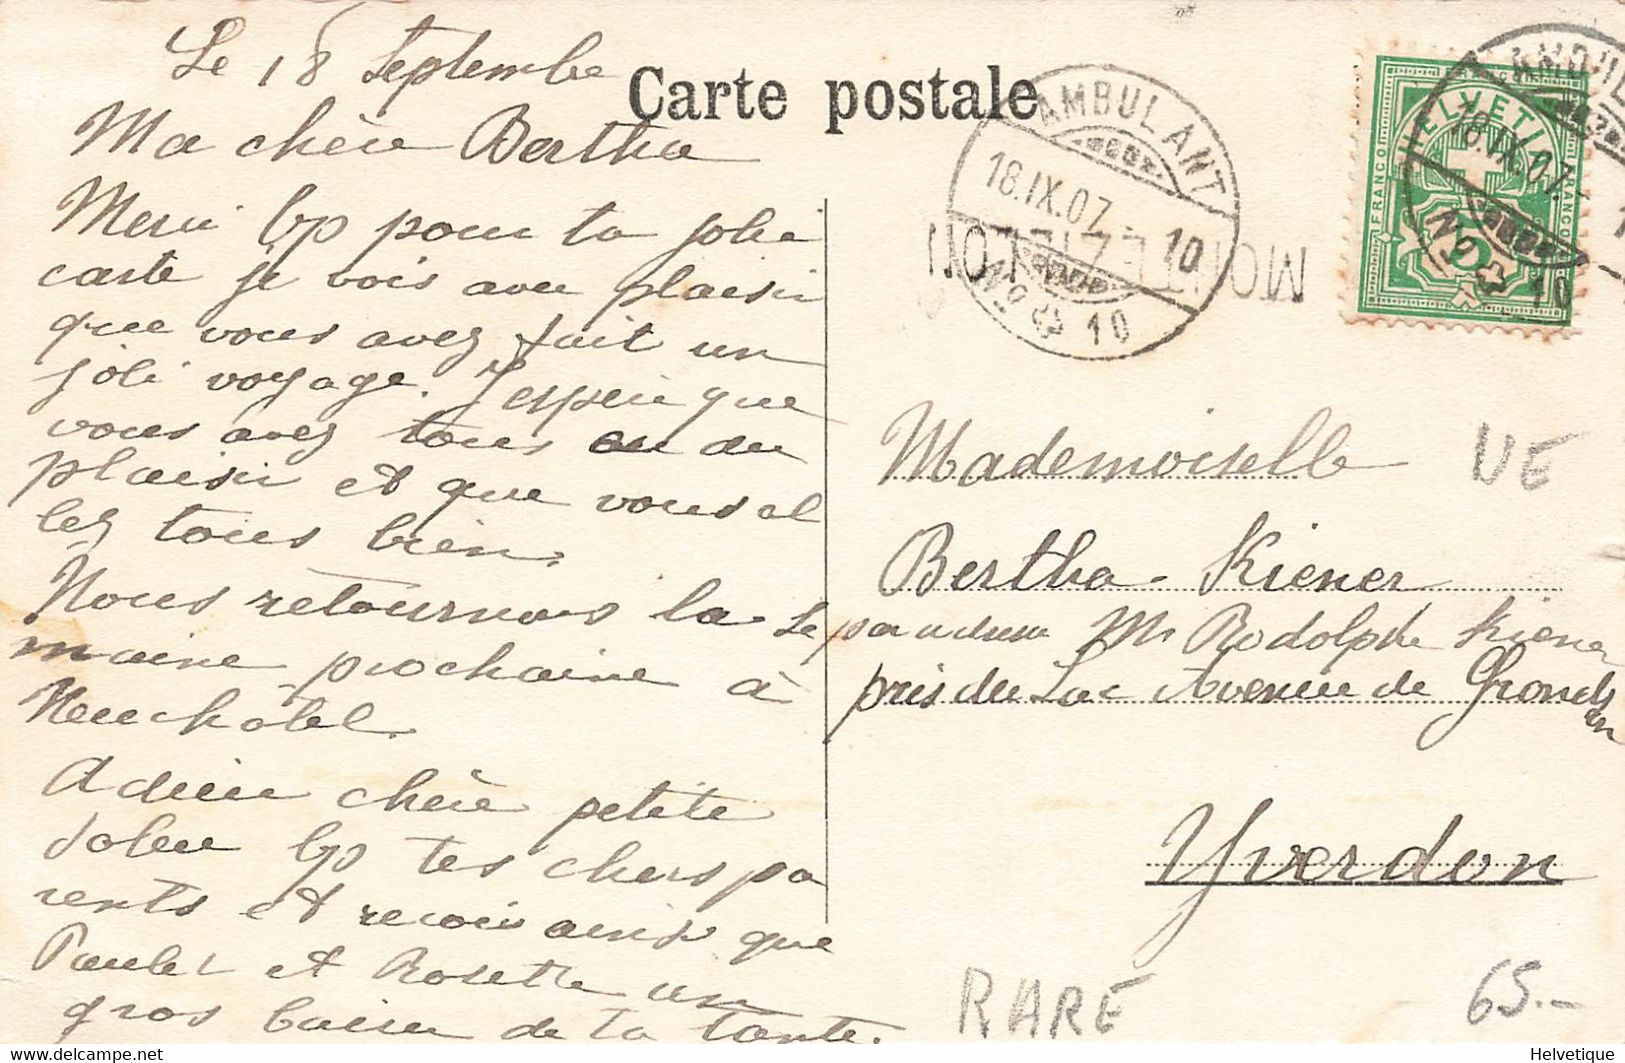 Le 18 Septembre
Carte postale
Ma chère Bertha
Merci bp pour ta jolie
carte je vois avec plaisir
que vous avez fait un
joli voyage. J'espère que
vous avez tous eu du
plaisir et que vous al
lez tous bien.
Nous retournons la se
maine prochaine à
Neuchâtel.
Adieu chère petite
salue bp tes chers pa
rents et reçois ainsi que
et Rosette un
gros baiser de ta tante.
AMBULANT
18.IX.07. 10
No 10
MONTEZILLON
HELVETIA
FRANCO
FRANCO
5
AMBUL
18.IX.07.
No 10
Mademoiselle
NE
Bertha Kiener
par adresse Mr Rodolphe Kiener
près du Lac Avenue de Grands
on
Yverdon
RARE
65.-
www.delcampe.net
Helvetique